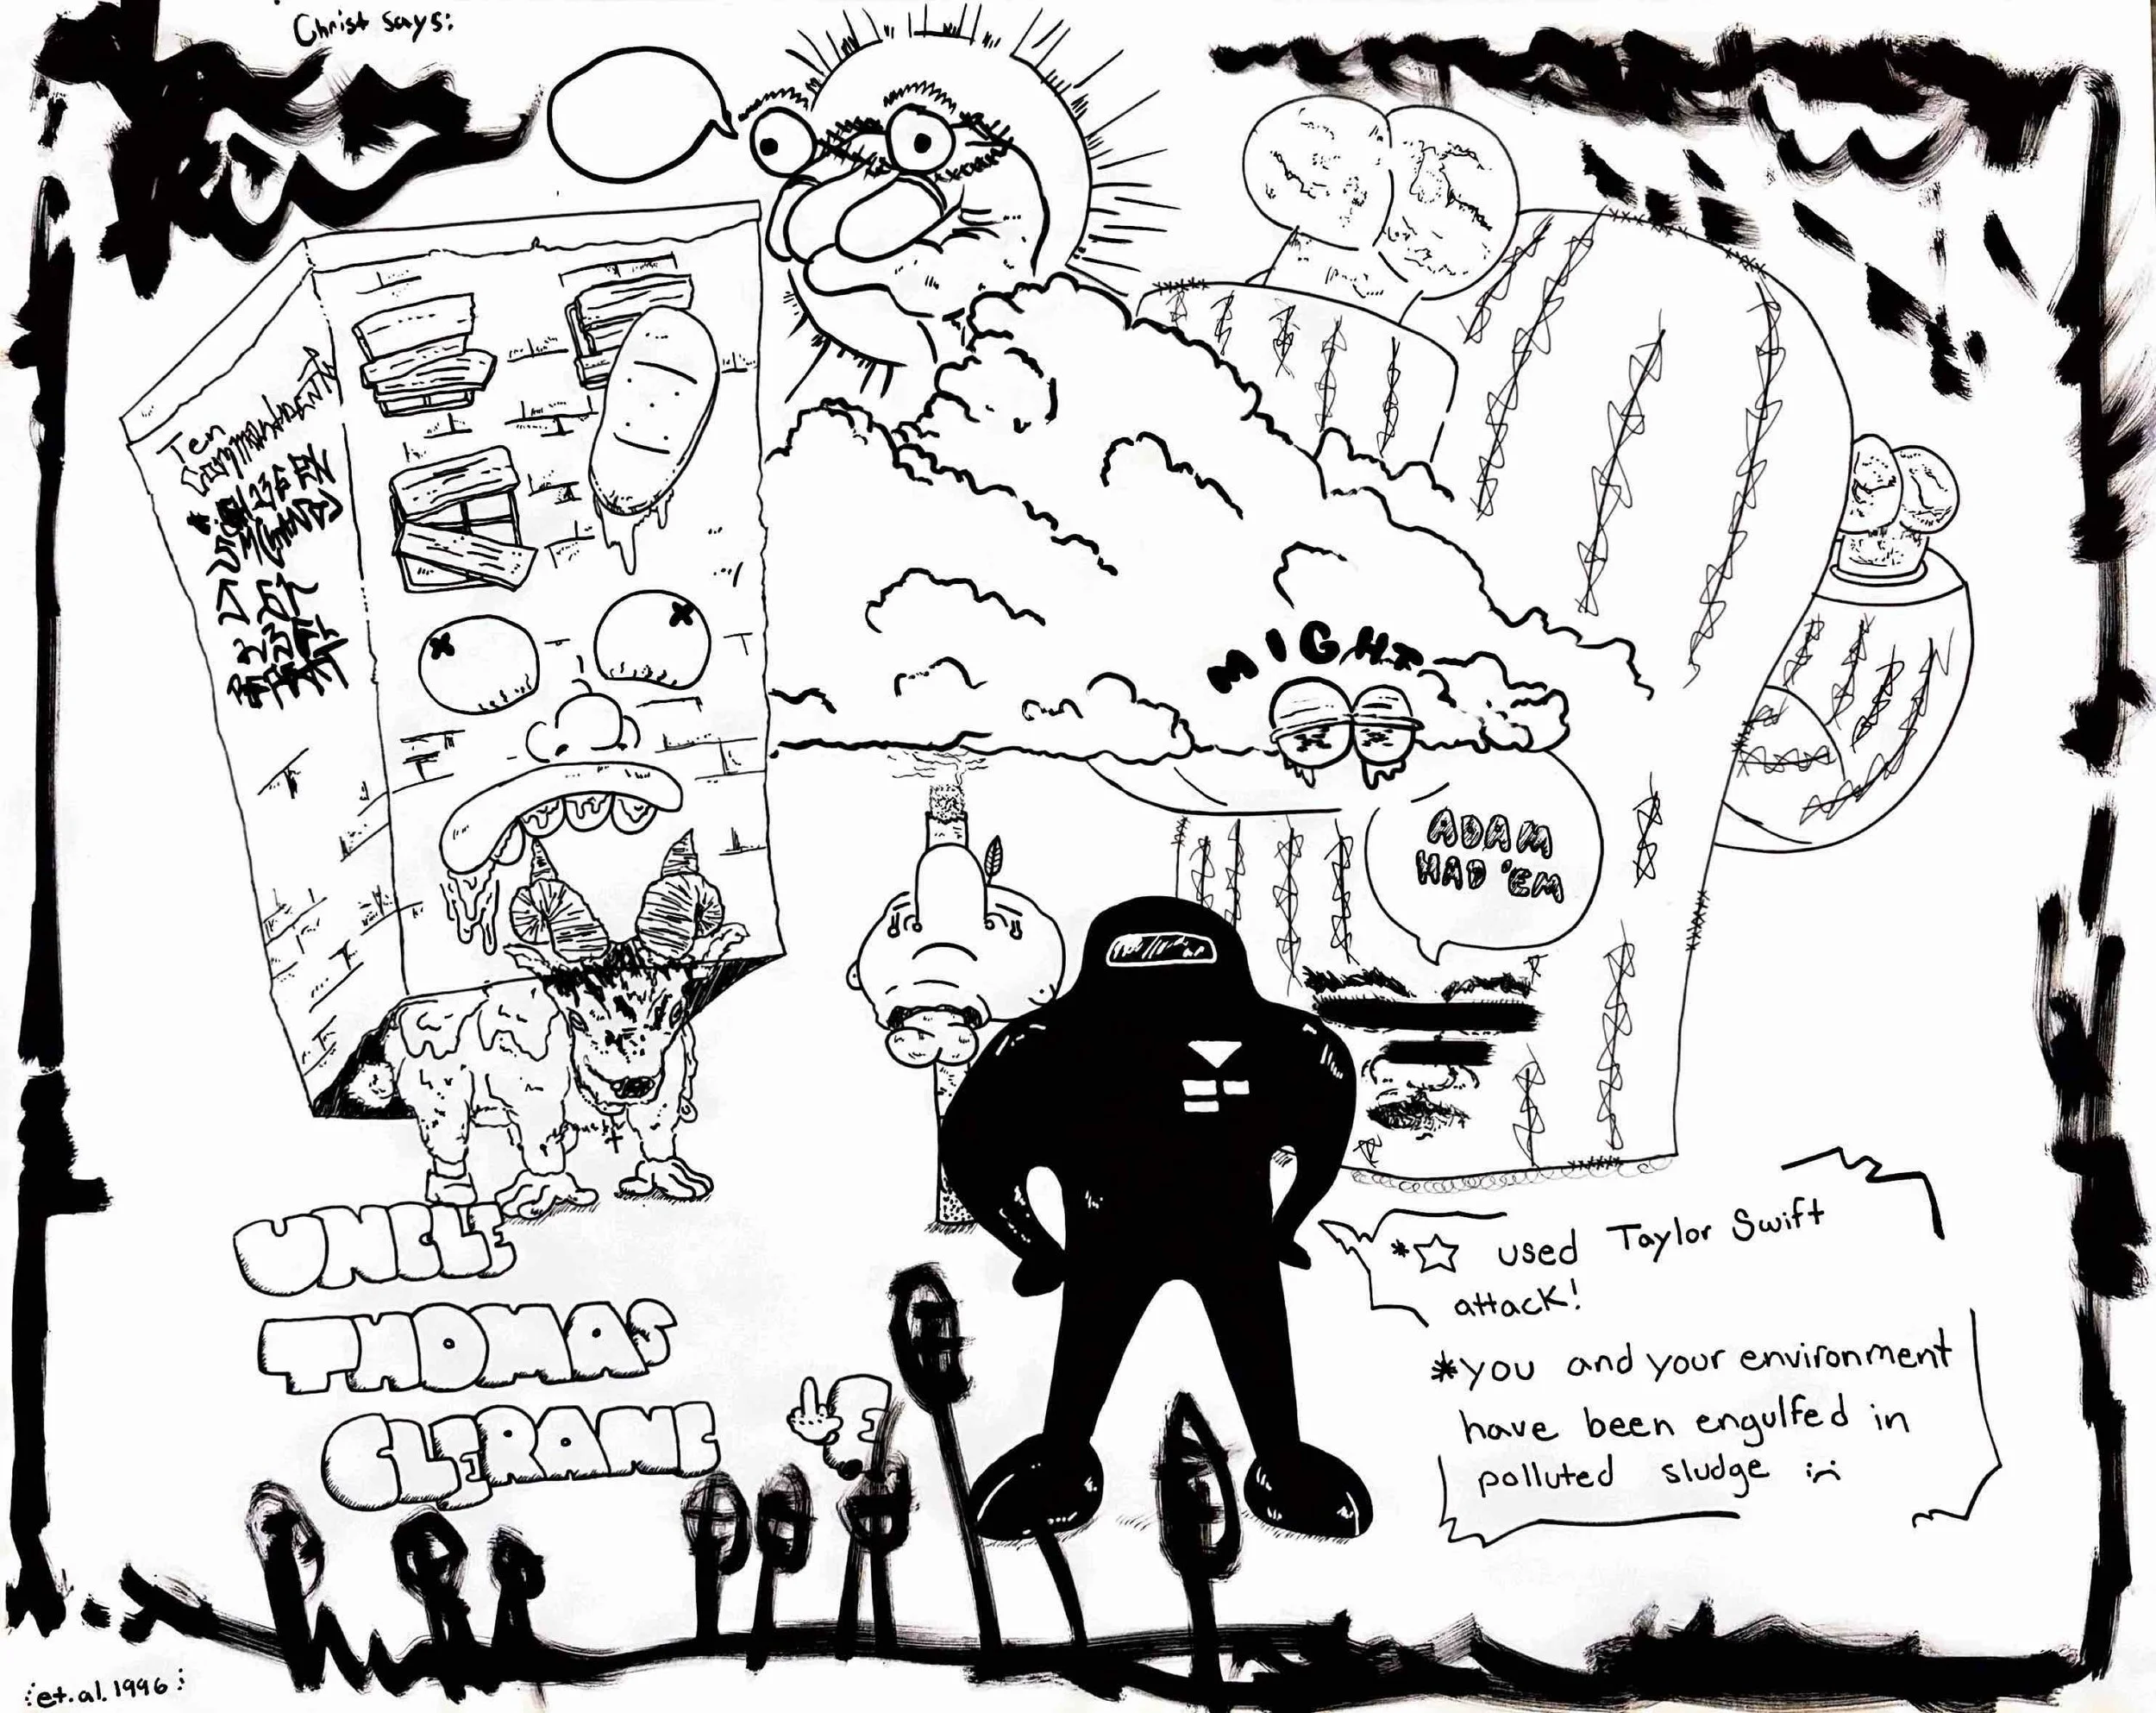 Christ says:
Ten
Commandments
MIGHT
ADAM
HAD 'EM
UNCLE
THOMAS
*☆ used Taylor Swift
attack!
*you and your environment
have been engulfed in
polluted sludge :(
:et.al.1996: